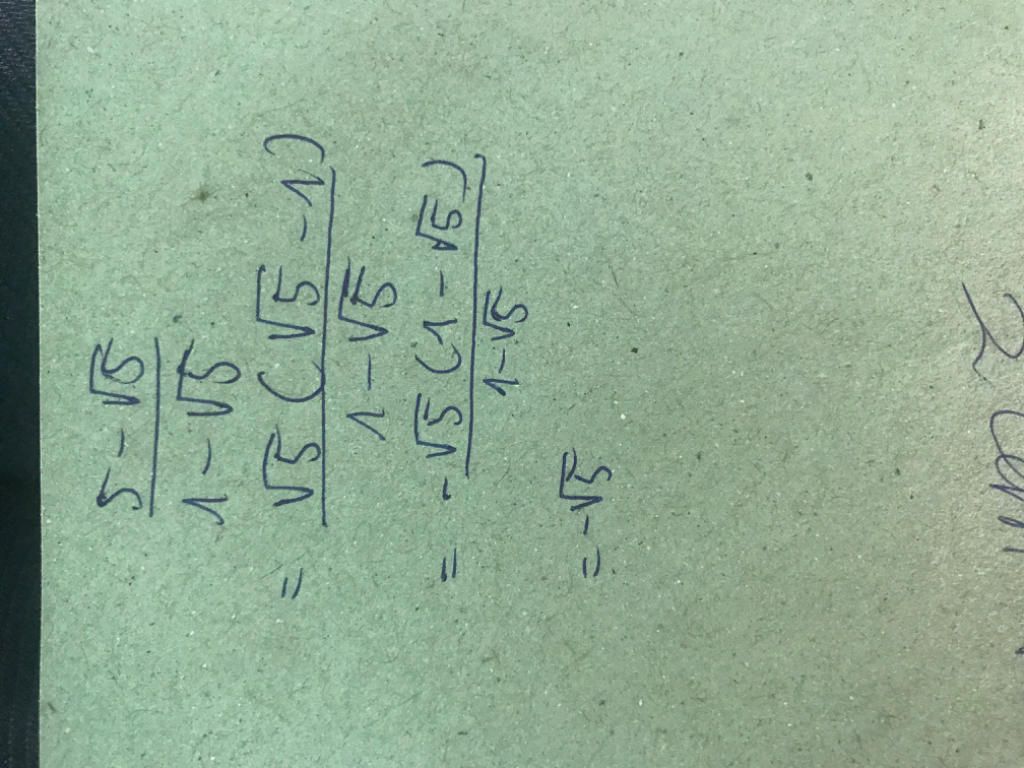 5 - √5
1 - √5
= √5 (√5 - 1)
1 - √5
= - √5 (1 - √5)
1 - √5
= - √5
2